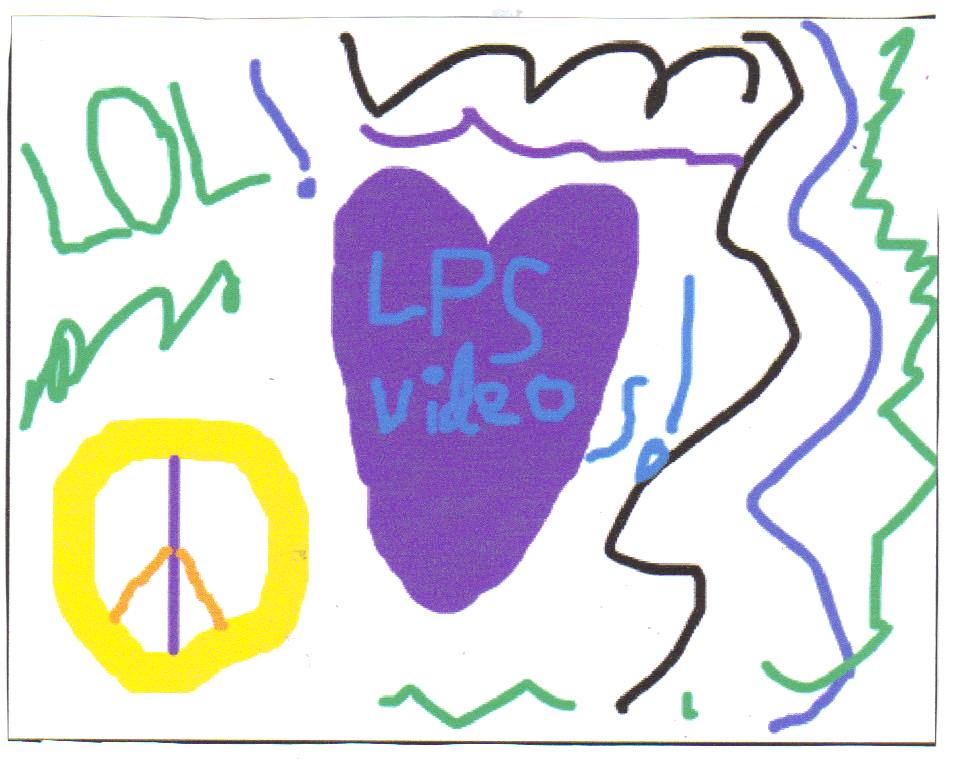 LOL!
LPS
videos!